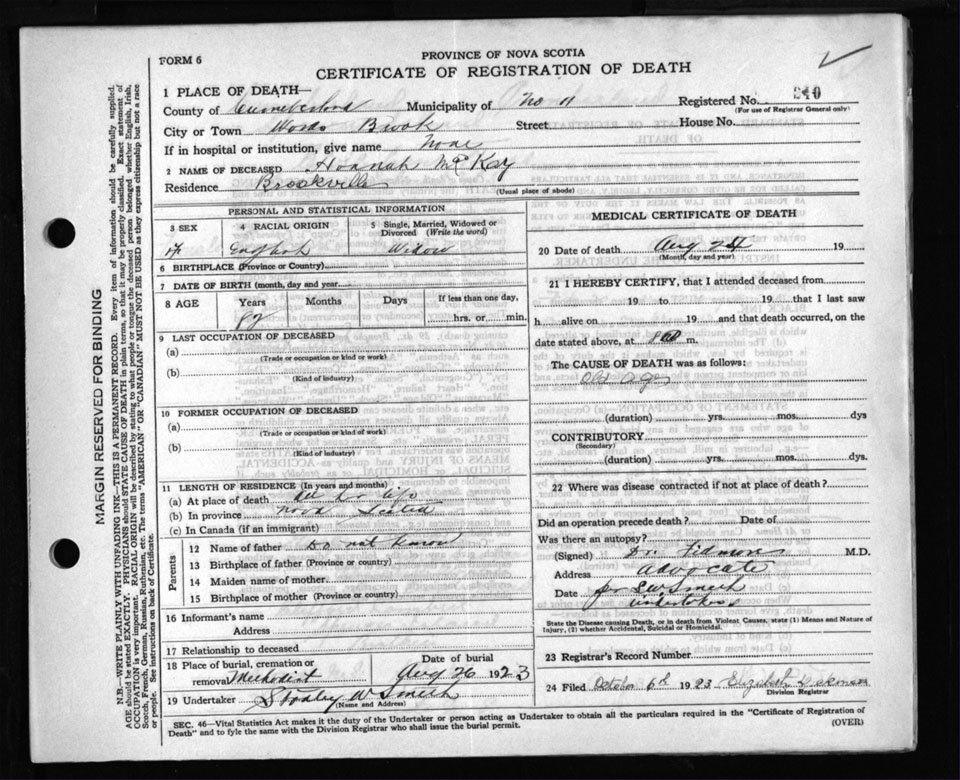 FORM 6
PROVINCE OF NOVA SCOTIA
CERTIFICATE OF REGISTRATION OF DEATH
1 PLACE OF DEATH—
County of Cumberland Municipality of No 11 Registered No. 240
(For use of Registrar General only)
City or Town Wards Brook Street House No.
If in hospital or institution, give name None
2 NAME OF DECEASED Hannah McKay
Residence Brookville (Usual place of abode)
PERSONAL AND STATISTICAL INFORMATION
3 SEX 4 RACIAL ORIGIN 5 Single, Married, Widowed or Divorced (Write the word)
English Widow
6 BIRTHPLACE (Province or Country)
7 DATE OF BIRTH (month, day and year)
8 AGE Years Months Days If less than one day,
82 hrs. or min.
9 LAST OCCUPATION OF DECEASED
(a)
(Trade or occupation or kind of work)
(b)
(Kind of industry)
10 FORMER OCCUPATION OF DECEASED
(a)
(Trade or occupation or kind of work)
(b)
(Kind of industry)
11 LENGTH OF RESIDENCE (In years and months)
(a) At place of death All her life
(b) In province Nova Scotia
(c) In Canada (if an immigrant)
Parents
12 Name of father Do not know
13 Birthplace of father (Province or country)
14 Maiden name of mother
15 Birthplace of mother (Province or country)
16 Informant's name
Address
17 Relationship to deceased
18 Place of burial, cremation or removal Methodist
Date of burial
Aug 26 1923
19 Undertaker Stanley W Smith
(Name and Address)
MEDICAL CERTIFICATE OF DEATH
20 Date of death Aug 19
(Month, day and year)
21 I HEREBY CERTIFY, that I attended deceased from
19 to 19 that I last saw
h alive on 19 and that death occurred, on
date stated above, at m.
The CAUSE OF DEATH was as follows:
Old Age
(duration) yrs. mos. dys
CONTRIBUTORY
(Secondary)
(duration) yrs. mos. dys
22 Where was disease contracted if not at place of death?
Did an operation precede death? Date of
Was there an autopsy?
(Signed) Dr. M.D.
Address Advocate
Date per S W Smith
undertaker
State the Disease causing Death, or in death from Violent Causes, state (1) Means and Nature of
Injury, (2) whether Accidental, Suicidal or Homicidal.
23 Registrar's Record Number
24 Filed October 6th 1923 Elizabeth
Division Registrar
SEC. 46—Vital Statistics Act makes it the duty of the Undertaker or person acting as Undertaker to obtain all the particulars required in the "Certificate of Registration of
Death" and to fyle the same with the Division Registrar who shall issue the burial permit.
(OVER)
MARGIN RESERVED FOR BINDING
N.B.—WRITE PLAINLY WITH UNFADING INK—THIS IS A PERMANENT RECORD. Every item of information should be carefully supplied.
AGE should be stated EXACTLY. PHYSICIANS should STATE CAUSE OF DEATH in plain terms, so that it may be properly classified. Exact statement of
OCCUPATION is very important. RACIAL ORIGIN will be described by stating to what people or tongue the deceased person belonged whether English, Irish,
Scotch, French, German, Russian, Ruthenian, etc. The terms "AMERICAN" OR "CANADIAN" MUST NOT BE USED as they express citizenship but not a race
or people. See instructions on back of Certificate.